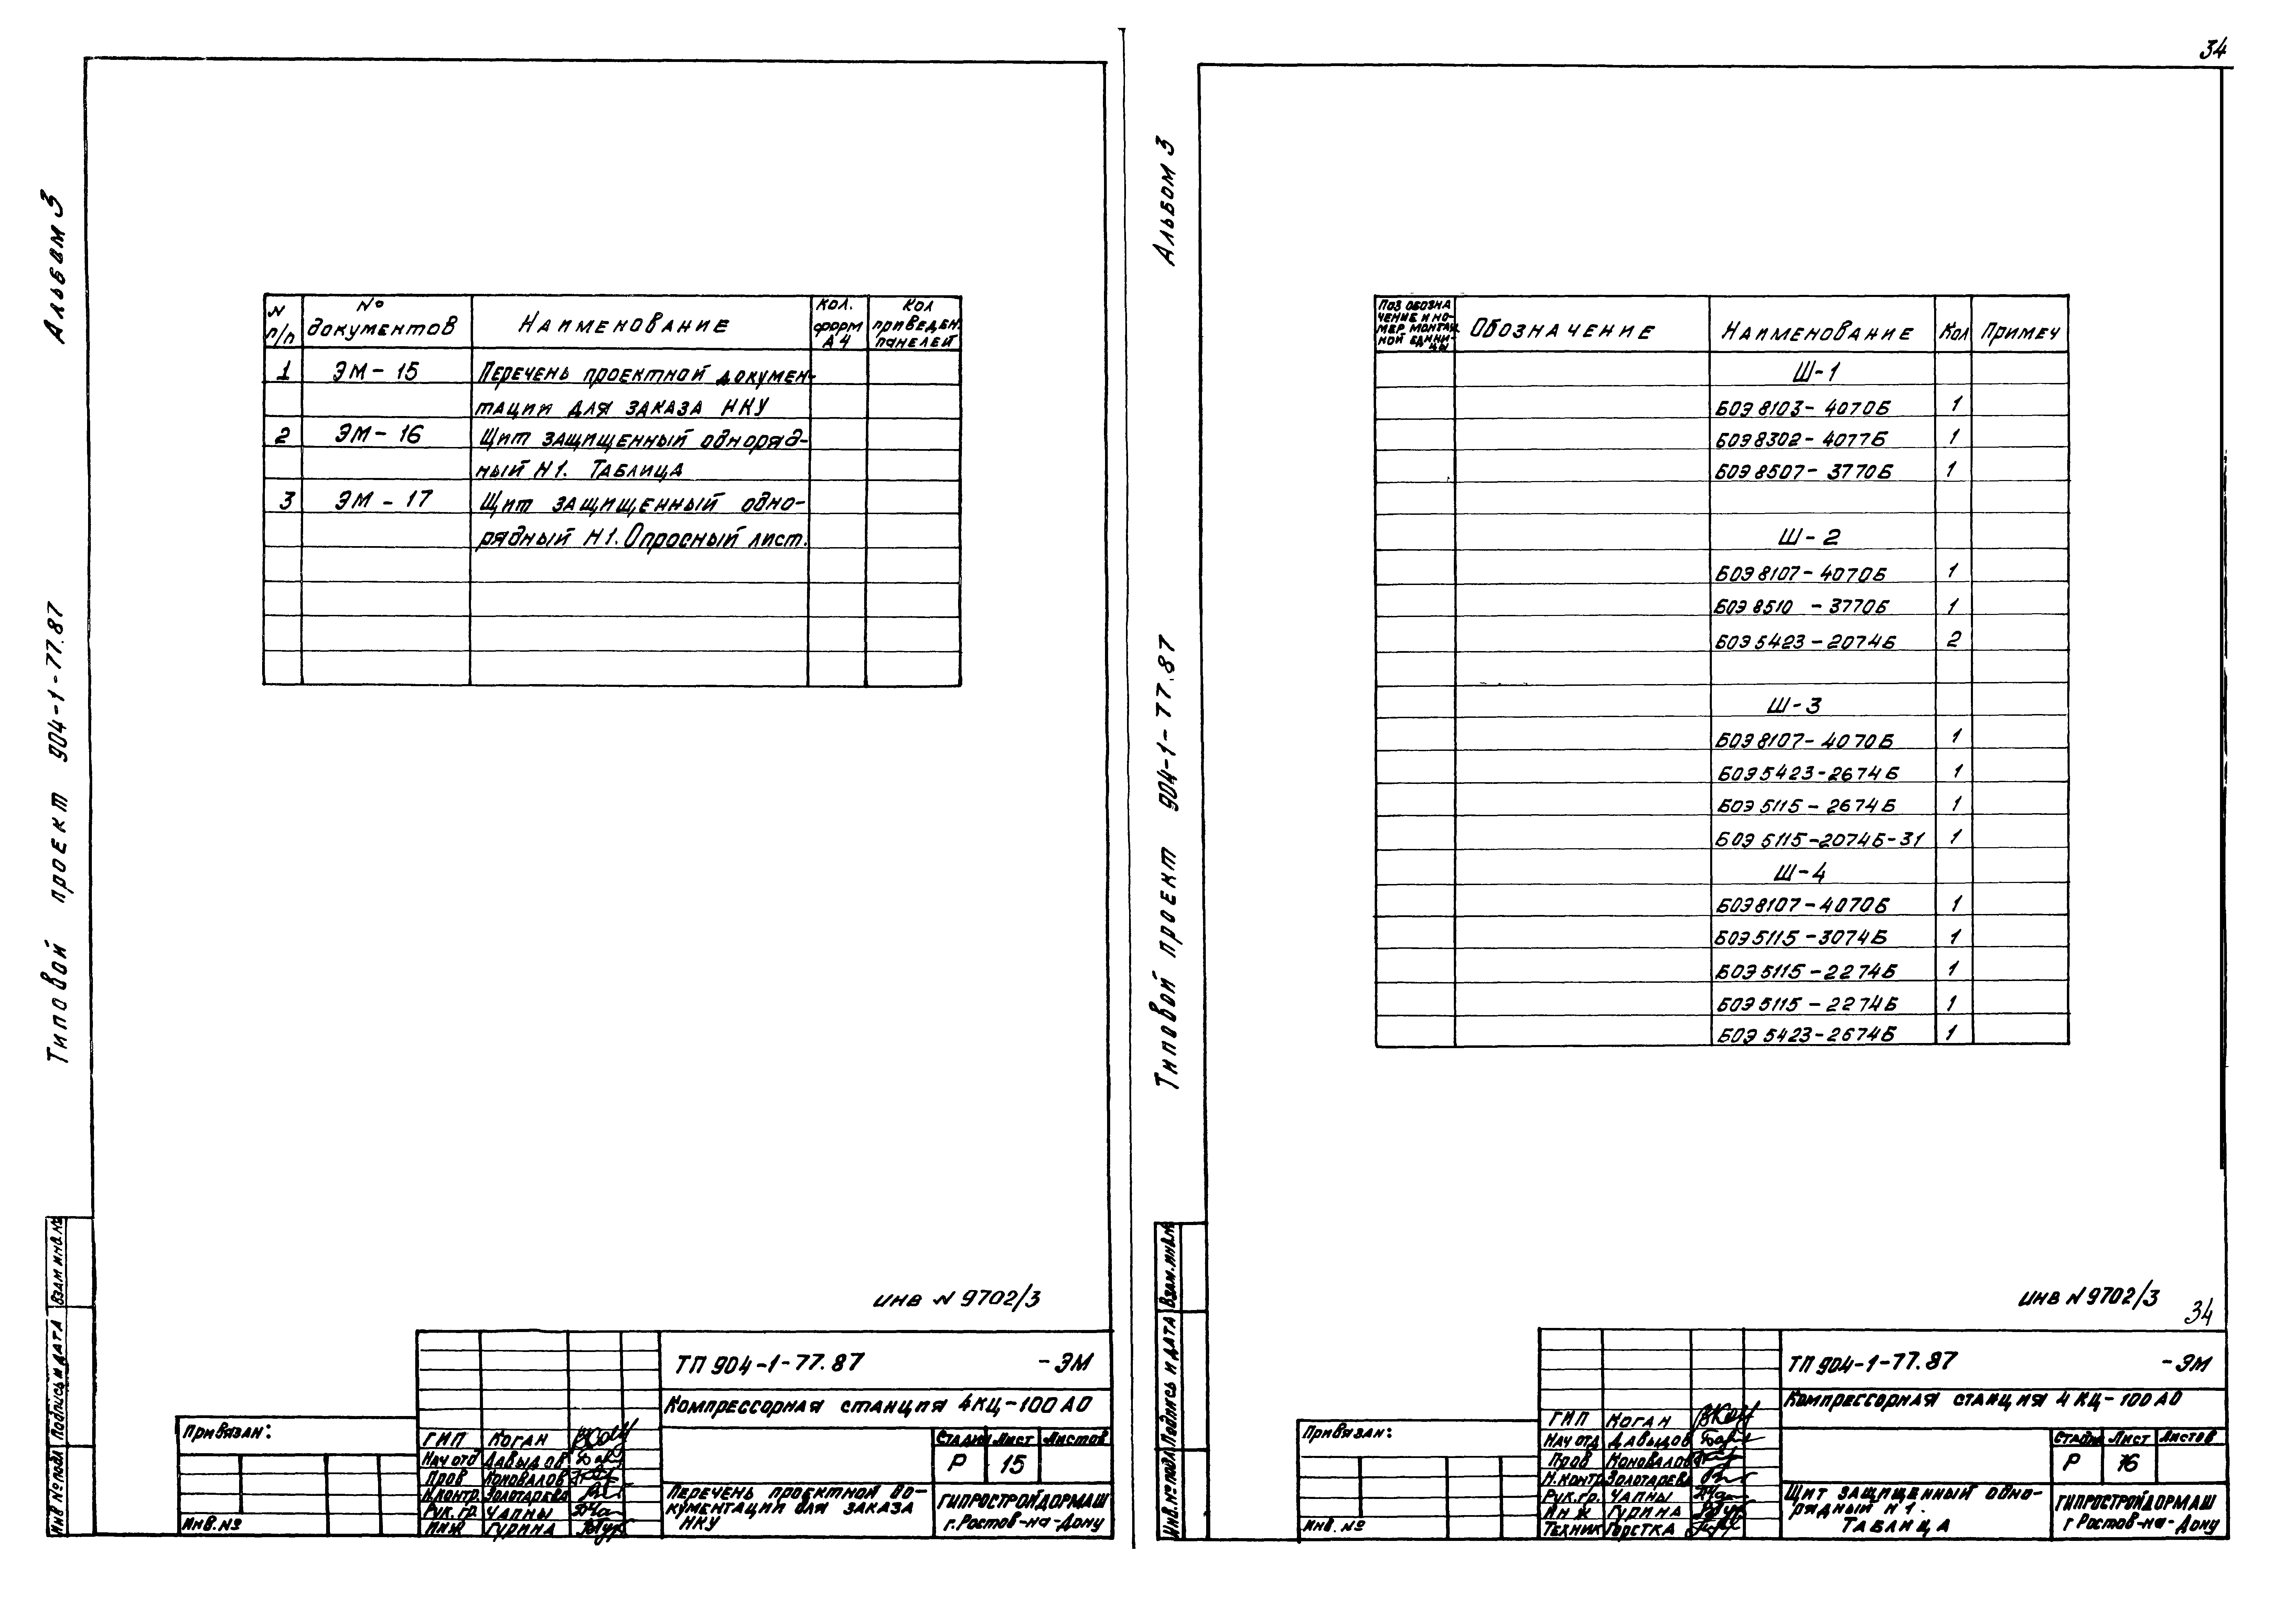 34
Альбом 3
Типовой проект 904-1-77.87
N п/п
№ документов
Наименование
Кол. форм А4
Кол приведен. панелей
1 ЭМ-15 Перечень проектной докумен-
тации для заказа НКУ
2 ЭМ-16 Щит защищенный одноряд-
ный Н1. Таблица
3 ЭМ-17 Щит защищенный одно-
рядный Н1. Опросный лист.
Инв № подл
Подпись и дата
Взам инв. №
инв N 9702/3
ТП 904-1-77.87 -ЭМ
Компрессорная станция 4КЦ-100А0
Привязан:
Инв. №
ГИП Коган
Нач отд Давыдов
Пров Коновалов
Н.контр. Золотарева
Рук. гр. Чапны
Инж Гурина
Стадия Лист Листов
Р 15
Перечень проектной до-
кументации для заказа
НКУ
ГИПРОСТРОЙДОРМАШ
г. Ростов-на-Дону
Альбом 3
Типовой проект 904-1-77.87
Поз обозна
чение и но-
мер монтаж
ной едини-
цы
Обозначение
Наименование
Кол
Примеч
Ш-1
БОЭ 8103-4070Б 1
БОЭ 8302-4077Б 1
БОЭ 8507-3770Б 1
Ш-2
БОЭ 8107-4070Б 1
БОЭ 8510 -3770Б 1
БОЭ 5423-2074Б 2
Ш-3
БОЭ 8107-4070Б 1
БОЭ 5423-2674Б 1
БОЭ 5115-2674Б 1
БОЭ 5115-2074Б-31 1
Ш-4
БОЭ 8107-4070Б 1
БОЭ 5115-3074Б 1
БОЭ 5115-2274Б 1
БОЭ 5115-2274Б 1
БОЭ 5423-2674Б 1
Инв. № подл
Подпись и дата
Взам. инв. №
инв N 9702/3
34
ТП 904-1-77.87 -ЭМ
Компрессорная станция 4КЦ-100А0
Привязан:
Инв. №
ГИП Коган
Нач отд Давыдов
Пров Коновалов
Н.контр. Золотарева
Рук. гр. Чапны
Инж Гурина
Техник Горстка
Стадия Лист Листов
Р 16
Щит защищенный одно-
рядный Н1.
Таблица
ГИПРОСТРОЙДОРМАШ
г Ростов-на-Дону